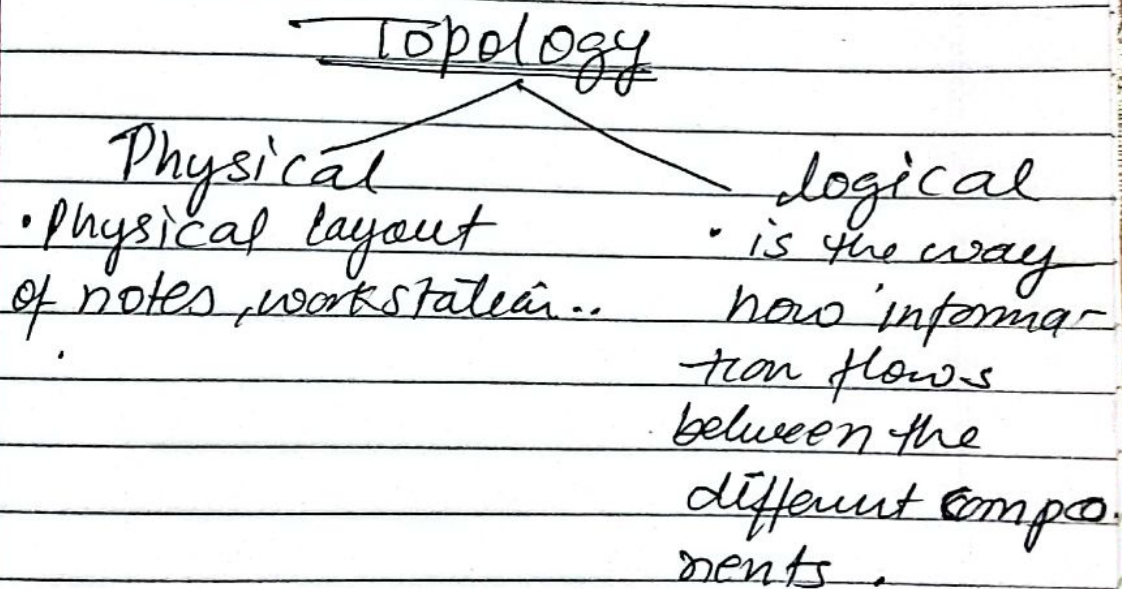 Topology
Physical
• Physical layout
of notes, workstatein..
•
logical
• is the way
how informa-
tion flows
between the
different compo.
nents.